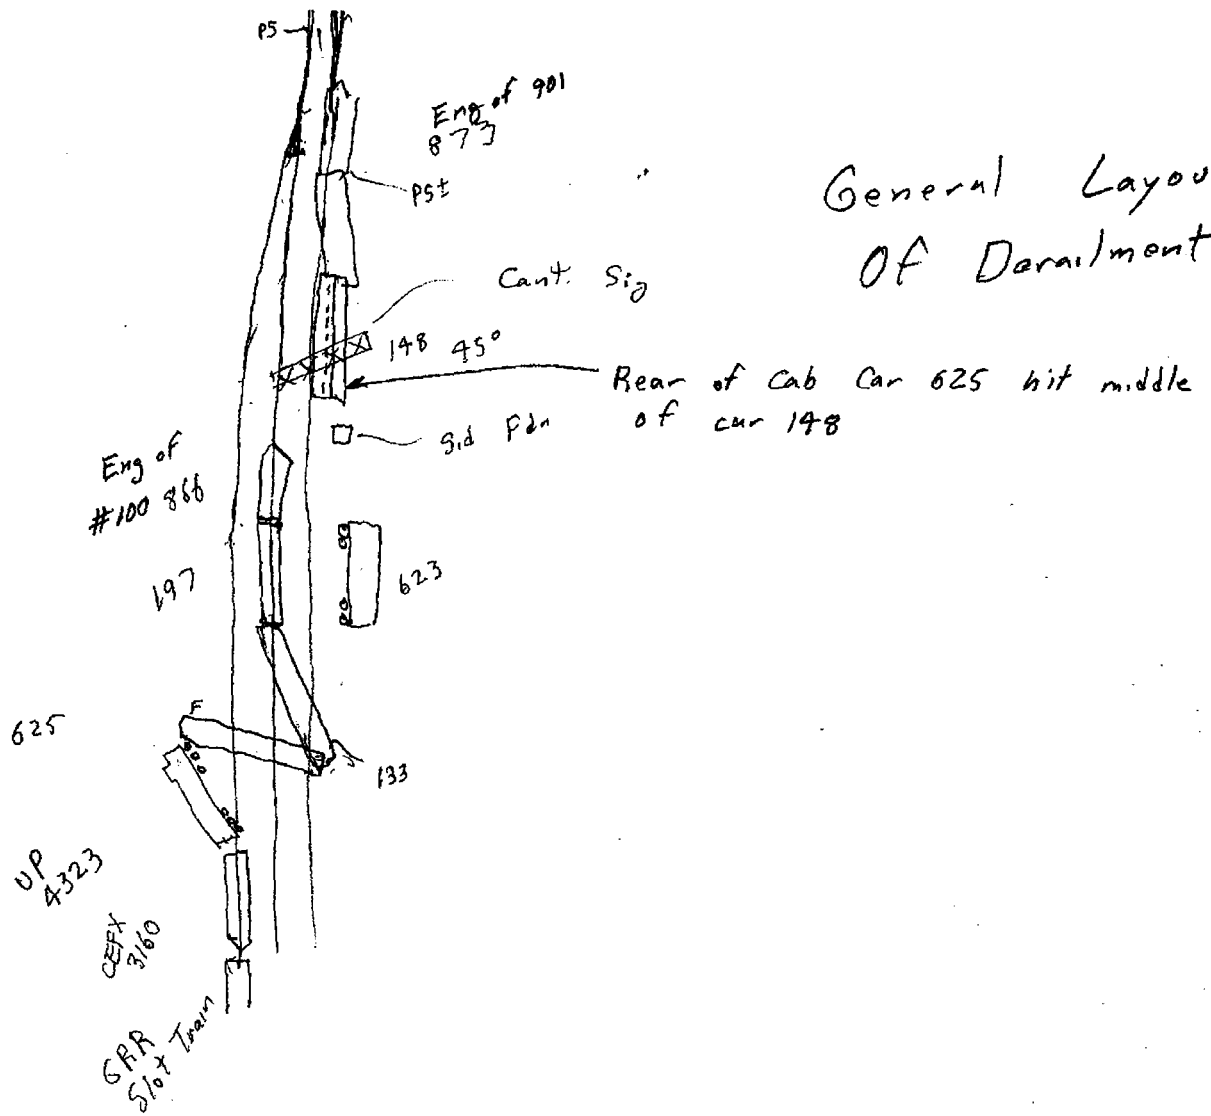 PS
Eng of 901
873
PS±
General Layou
Of Derailment
Cant. Sig
148 45°
Rear of Cab Car 625 hit middle
of car 148
Fdn
Eng of
#100 866
197
623
625
F
133
UP
4323
CEFX
3160
GRR
Slot Train